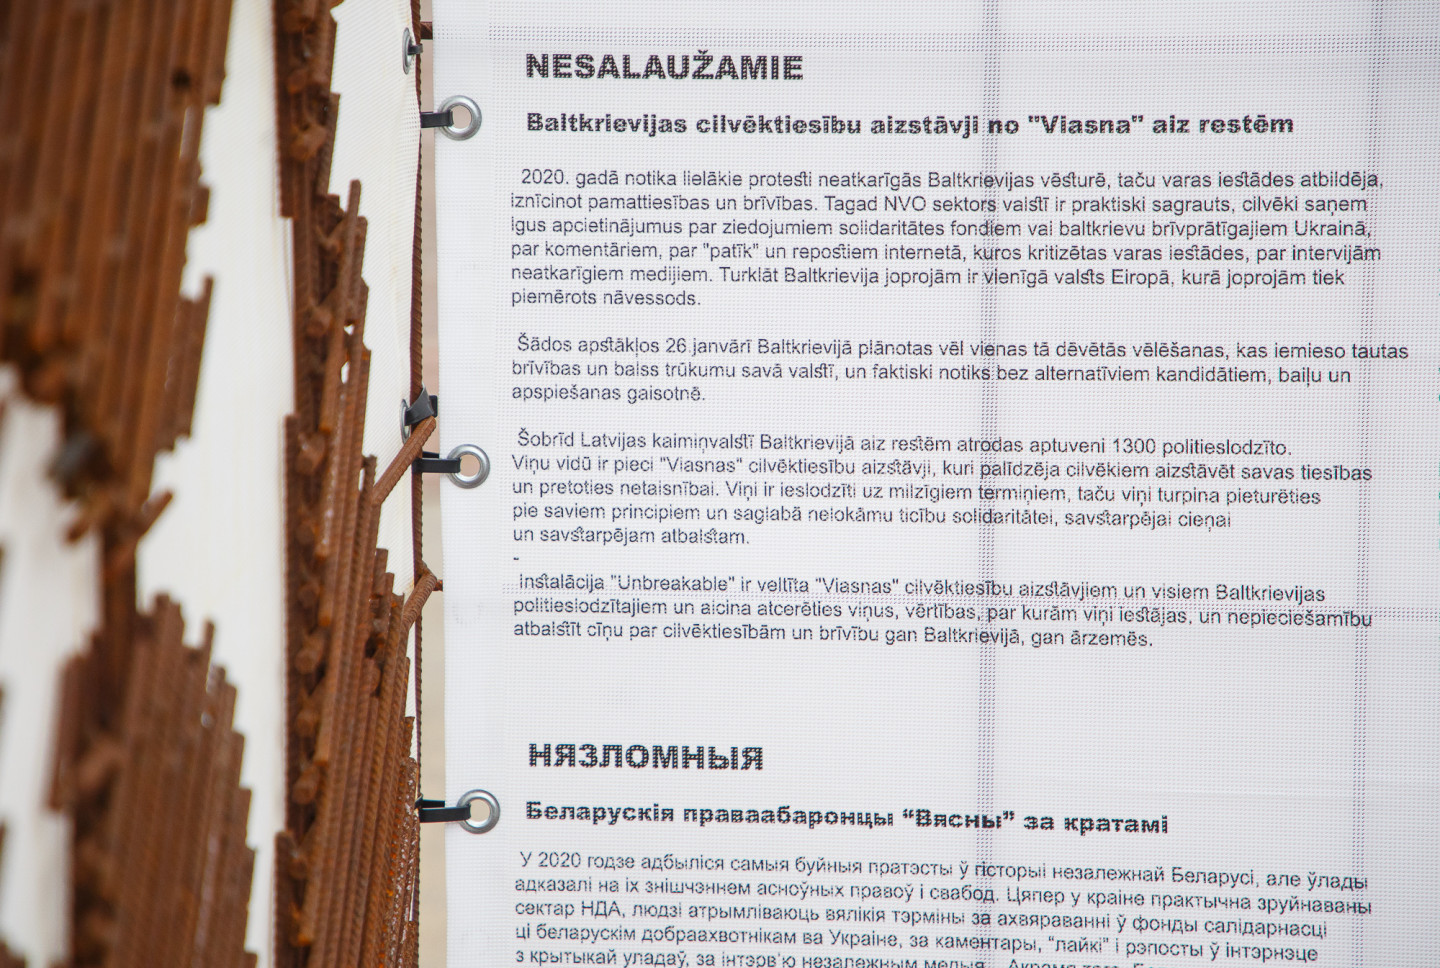 NESALAUŽAMIE
Baltkrievijas cilvēktiesību aizstāvji no "Viasna" aiz restēm
2020. gadā notika lielākie protesti neatkarīgās Baltkrievijas vēsturē, taču varas iestādes atbildēja,
iznīcinot pamattiesības un brīvības. Tagad NVO sektors valstī ir praktiski sagrauts, cilvēki saņem
ilgus apcietinājumus par ziedojumiem solidaritātes fondiem vai baltkrievu brīvprātīgajiem Ukrainā,
par komentāriem, par "patīk" un repostiem internetā, kuros kritizētas varas iestādes, par intervijām
neatkarīgiem medijiem. Turklāt Baltkrievija joprojām ir vienīgā valsts Eiropā, kurā joprojām tiek
piemērots nāvessods.
Šādos apstākļos 26.janvārī Baltkrievijā plānotas vēl vienas tā dēvētās vēlēšanas, kas iemieso tautas
brīvības un balss trūkumu savā valstī, un faktiski notiks bez alternatīviem kandidātiem, baiļu un
apspiešanas gaisotnē.
Šobrīd Latvijas kaimiņvalstī Baltkrievijā aiz restēm atrodas aptuveni 1300 politieslodzīto.
Viņu vidū ir pieci "Viasnas" cilvēktiesību aizstāvji, kuri palīdzēja cilvēkiem aizstāvēt savas tiesības
un pretoties netaisnībai. Viņi ir ieslodzīti uz milzīgiem termiņiem, taču viņi turpina pieturēties
pie saviem principiem un saglabā nelokāmu ticību solidaritātei, savstarpējai cieņai
un savstarpējam atbalstam.
-
Instalācija "Unbreakable" ir veltīta "Viasnas" cilvēktiesību aizstāvjiem un visiem Baltkrievijas
politieslodzītajiem un aicina atcerēties viņus, vērtības, par kurām viņi iestājas, un nepieciešamību
atbalstīt cīņu par cilvēktiesībām un brīvību gan Baltkrievijā, gan ārzemēs.
НЯЗЛОМНЫЯ
Беларускія праваабаронцы “Вясны” за кратамі
У 2020 годзе адбыліся самыя буйныя пратэсты ў гісторыі незалежнай Беларусі, але ўлады
адказалі на іх знішчэннем асноўных правоў і свабод. Цяпер у краіне практычна зруйнаваны
сектар НДА, людзі атрымліваюць вялікія тэрміны за ахвяраванні ў фонды салідарнасці
ці беларускім добраахвотнікам ва Украіне, за каментары, "лайкі" і рэпосты ў інтэрнэце
з крытыкай уладаў, за інтэрв'ю незалежным медыя.